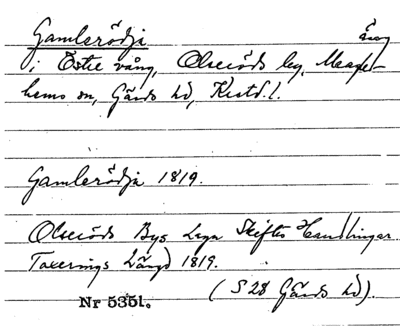 Gamlerödja äng
i Östre vång, Olseröds by, Maglehems sn, Gärds hd, Krstd. l.
Gamlerödja 1819.
Olseröds Bys Laga Skiftes Handlingar
Taxerings Längd 1819.
(S 28 Gärds hd).
Nr 5351.